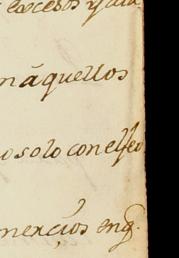 excesos y
náquellos
o solo con el feo
merçios eng.